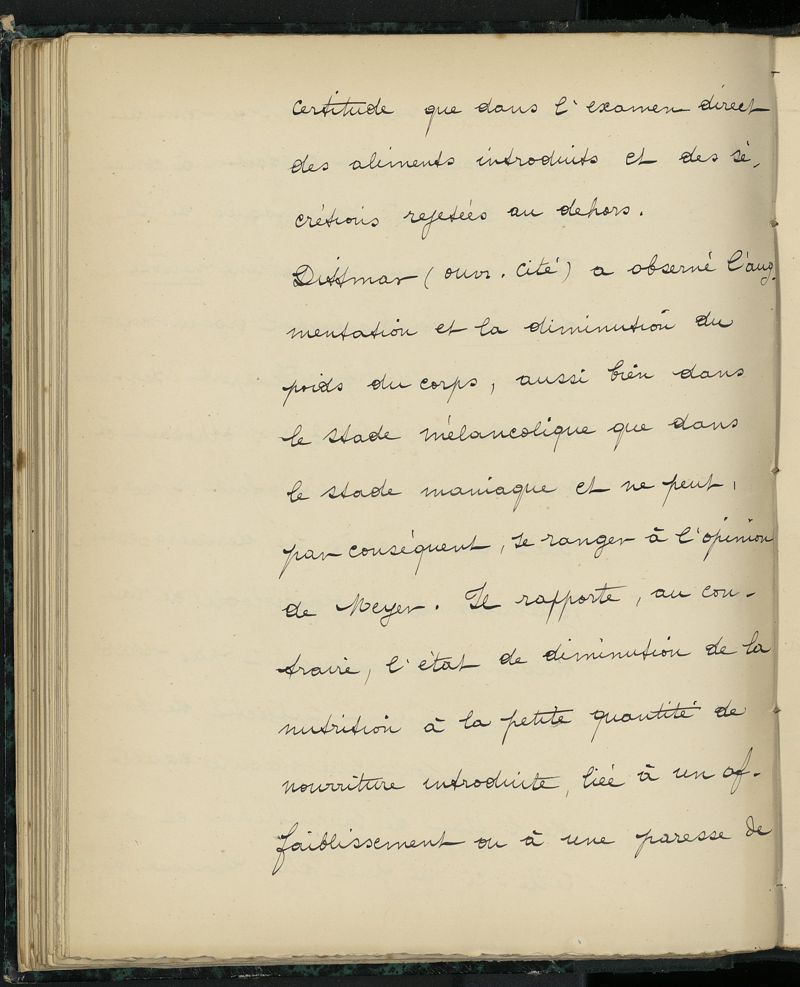 certitude que dans l'examen direct
des aliments introduits et des sé-
crétions rejetées au dehors.
Dittmar (ouvr. cité) a observé l'aug-
mentation et la diminution du
poids du corps, aussi bien dans
le stade mélancolique que dans
le stade maniaque et ne peut,
par conséquent, se ranger à l'opinion
de Meyer. Il rapporte, au con-
traire, l'état de diminution de la
nutrition à la petite quantité de
nourriture introduite, liée à un af-
faiblissement ou à une paresse de